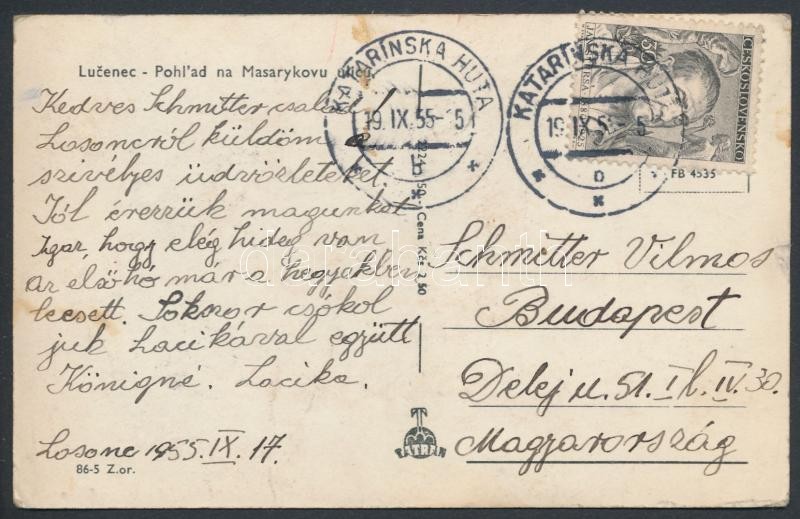 Lučenec - Pohľad na Masarykovu ulicu
Kedves Schmitter család!
Losoncról küldöm
szivélyes üdvözleteket.
Jól érezzük magunkat
Igaz, hogy elég hideg van
Az első hó már a hegyekben
leesett. Sokszor csókol
juk Lacikával együtt
Königné. Lacika.
Losonc 1955. IX. 17.
86-5 Z.or.
KATARÍNSKA HUTA
19.IX.55-15
b
KATARÍNSKA HUTA
19.IX.55
b
50 - Cena Kčs 2,50
ČESKOSLOVENSKO
FB 4535
Schmitter Vilmos
Budapest
Delej u. 51. I l. IV. 30.
Magyarország
TATRAN
darabanth